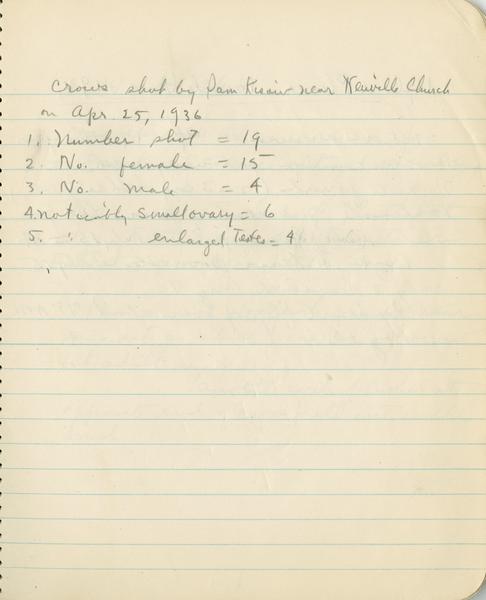 Crows shot by Sam near Church
on Apr. 25, 1936
1. Number shot = 19
2. No. female = 15
3. No. male = 4
4. noticibly small ovary = 6
5. " enlarged Testes = 4